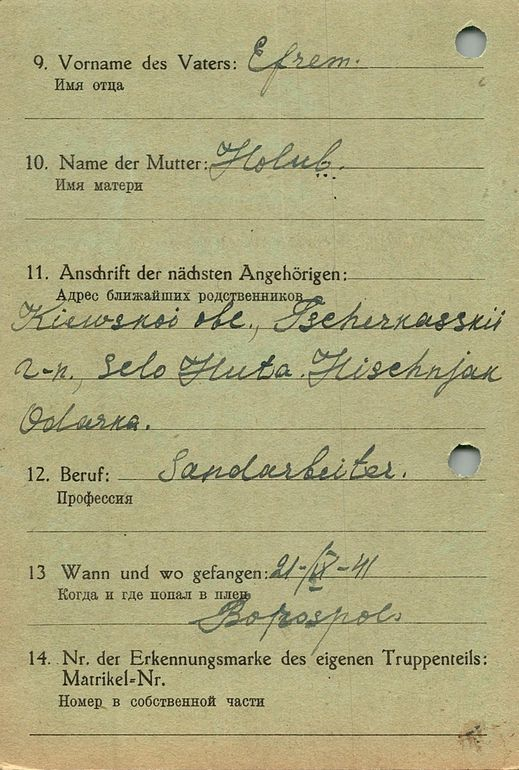 9. Vorname des Vaters: Efrem.
Имя отца
10. Name der Mutter: Holub.
Имя матери
11. Anschrift der nächsten Angehörigen:
Адрес ближайших родственников
Kiewskoi obl., Tscherkasskii
r-n., Selo Huta. Hischnjak
Odarka.
12. Beruf: Landarbeiter.
Профессия
13 Wann und wo gefangen: 21-IX-41
Когда и где попал в плен
Borospol.
14. Nr. der Erkennungsmarke des eigenen Truppenteils:
Matrikel-Nr.
Номер в собственной части